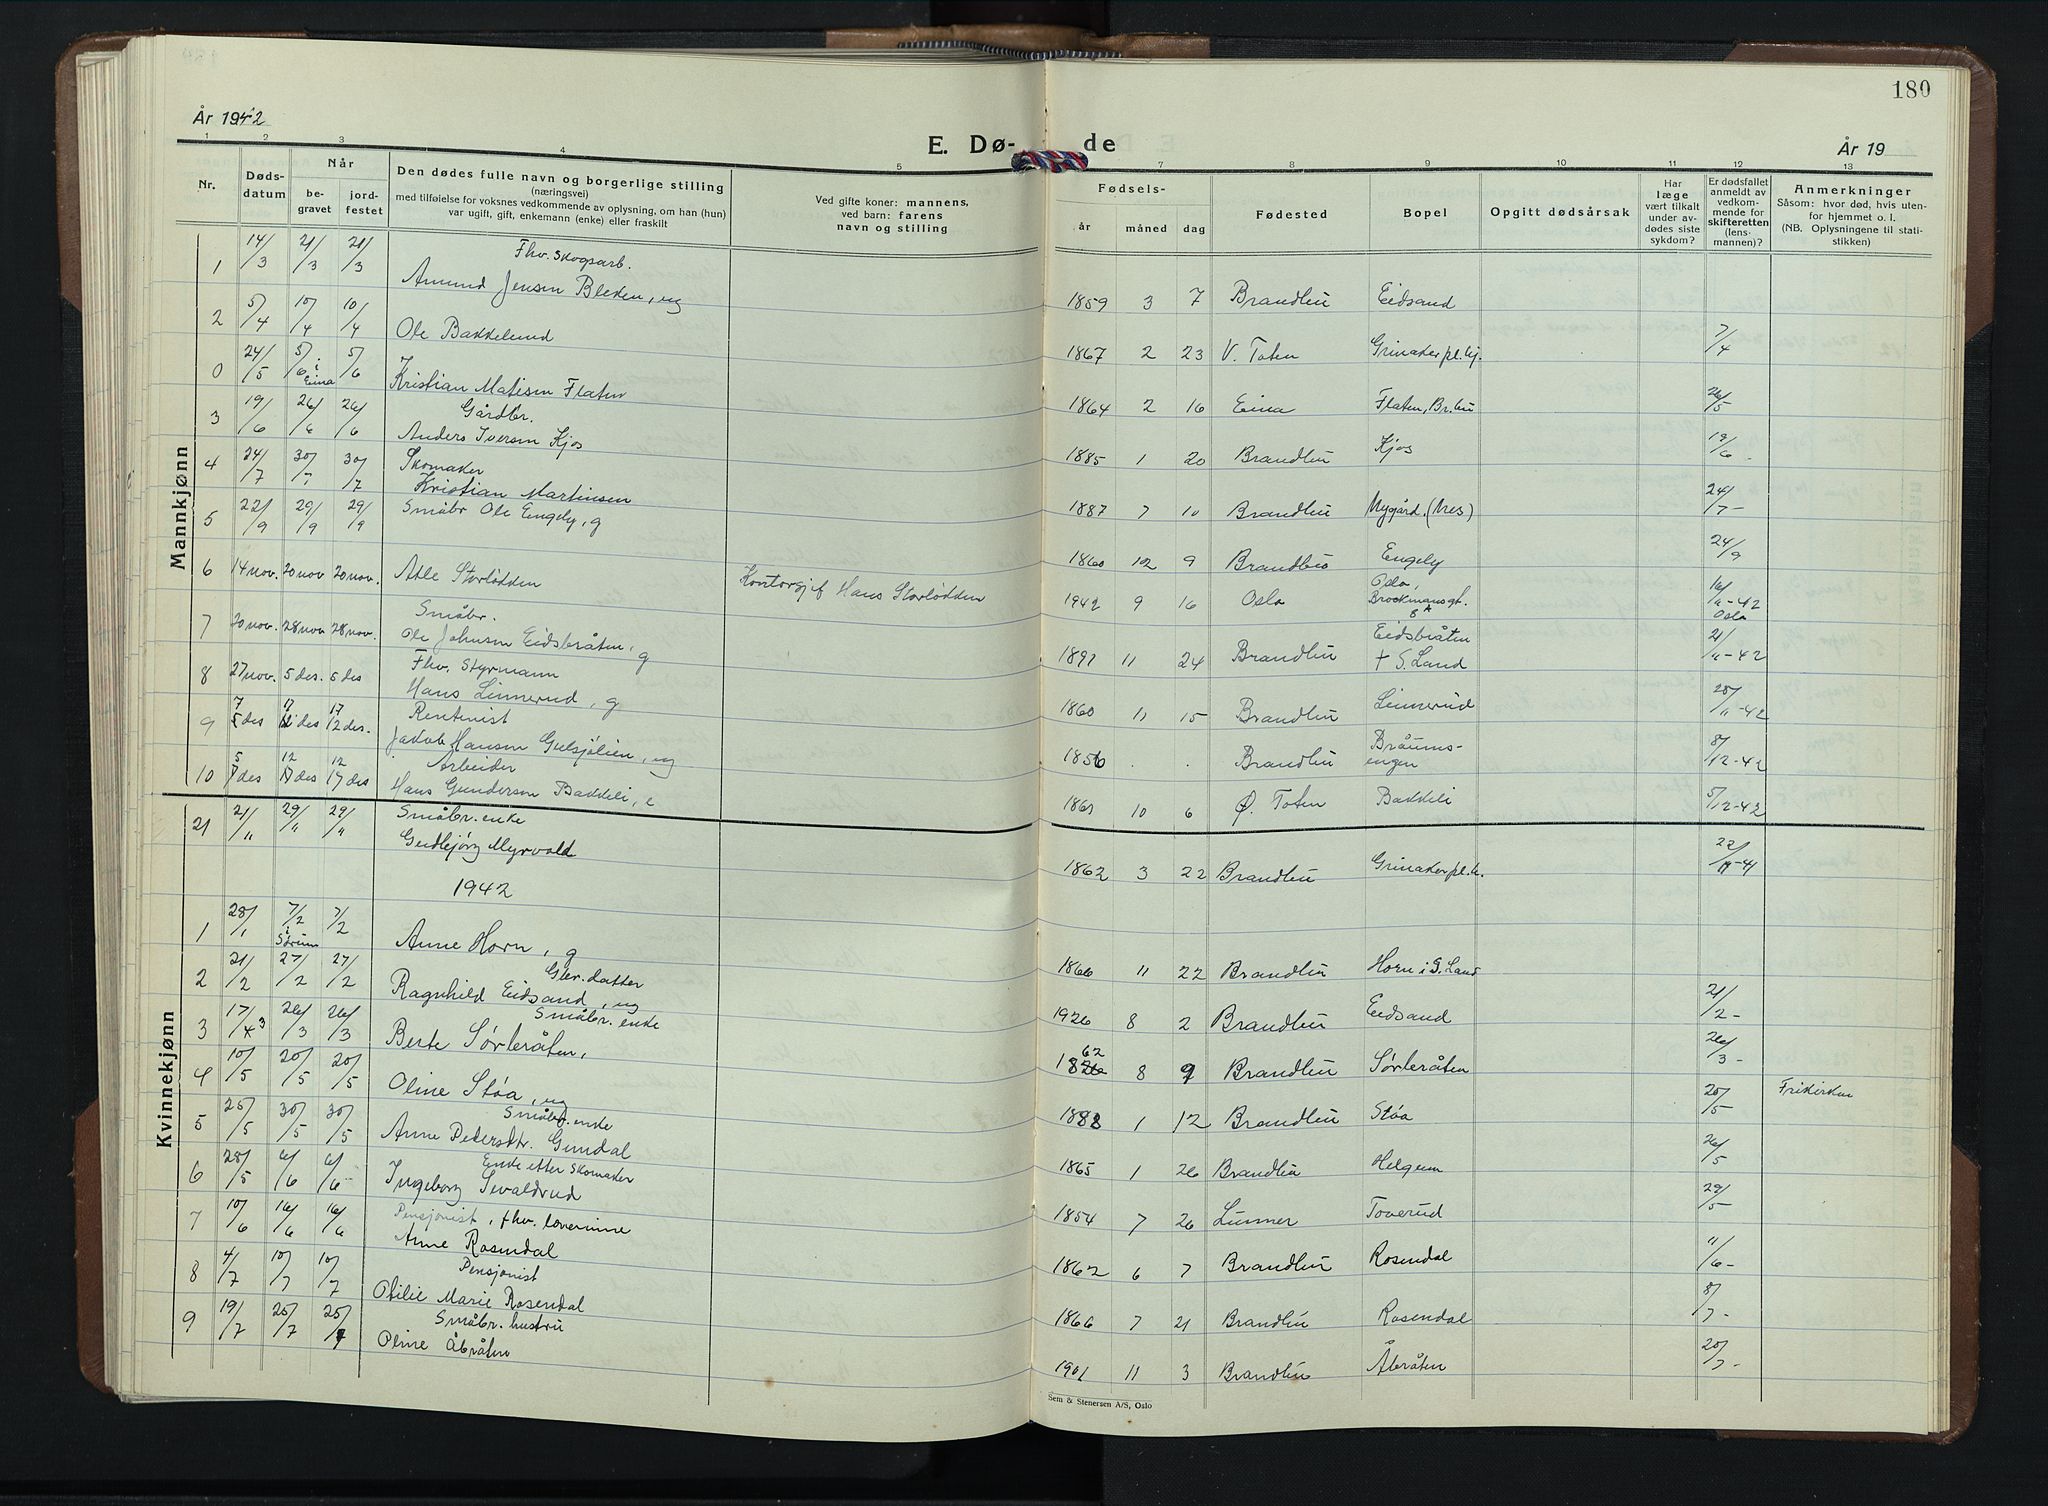 180
År 1942
E. Dø-
de
År 19
1 2 3 4 5 7 8 9 10 11 12 13
Nr.
Døds-
datum
Når
be-
gravet
jord-
festet
Den dødes fulle navn og borgerlige stilling
(næringsvei)
med tilføielse for voksnes vedkommende av oplysning, om han (hun)
var ugift, gift, enkemann (enke) eller fraskilt
Ved gifte koner: mannens,
ved barn: farens
navn og stilling
Fødsels-
år måned dag
Fødested
Bopel
Opgitt dødsårsak
Har
læge
vært tilkalt
under av-
dødes siste
sykdom?
Er dødsfallet
anmeldt av
vedkom-
mende for
skifteretten
(lens-
mannen)?
Anmerkninger
Såsom: hvor død, hvis uten-
for hjemmet o. l.
(NB. Oplysningene til stati-
stikken)
Mannkjønn
1 14/3 21/3 21/3 Fhv. skogsarb.
Amund Jensen Bleken, ug 1859 3 7 Brandbu Eidsand
2 5/4 10/4 10/4 Ole Bakkelund 1867 2 23 V. Toten Grinaker pl.hj. 7/4
0 24/5 5/6 i Eina 5/6 Kristian Matisen Flaten 1864 2 16 Eina Flaten, Br.bu 26/5
3 19/6 26/6 26/6 Gårdbr.
Anders Iversen Kjos 1885 1 20 Brandbu Kjos 19/6 -
4 24/7 30/7 30/7 Skomaker
Kristian Martinsen 1887 7 10 Brandbu Nygård. (Nes) 24/7 -
5 22/9 29/9 29/9 Småbr Ole Engely, g 1860 12 9 Brandbu Engely 24/9
6 14 nov. 20 nov 20 nov. Atle Storlødden Kontorsjef Hans Storlødden 1942 9 16 Oslo Oslo,
Brockmansgt. 8A 16/11-42
Oslo
7 20 nov. 28 nov 28 nov. Småbr.
Ole Johnsen Eidsbråten, g 1891 11 24 Brandbu Eidsbråten
+ S. Land 21/11-42
8 27 nov. 5 des. 5 des Fhv. styrmann
Hans Linnerud, g 1860 11 15 Brandbu Linnerud 28/11-42
9 7 des 17 des 17 des. Rentenist
Jakob Hansen Gulsjølien, ug 1856 . . Brandbu Bråums-
engen 8/12-42
10 5 des 12 des 12 des Arbeider
Hans Gundersen Bakkeli, e 1861 10 6 Ø. Toten Bakkeli 5/12-42
Kvinnekjønn
21 21/11 29/11 29/11 Småbr. enke
Gudbjørg Myrvold 1862 3 22 Brandbu Grinaker pl.h. 22/11-41
1942
1 28/1 7/2 i Sørum 7/2 Anne Horn, g 1866 11 22 Brandbu Horn i S. Land
2 21/2 27/2 27/2 Gbr. datter
Ragnhild Eidsand, ug 1926 8 2 Brandbu Eidsand 21/2 -
3 17/3 26/3 26/3 Småbr. enke
Berte Sørleråten, 1862 8 9 Brandbu Sørleråten 26/3 -
4 10/5 20/5 20/5 Oline Støa, ug 1888 1 12 Brandbu Støa 20/5 Frikirken
5 25/5 30/5 30/5 Småbr. enke
Anne Pedersdtr. Gundal 1865 1 26 Brandbu Helgum 26/5
6 28/5 6/6 6/6 - Enke etter skomaker
Ingeborg Sevaldrud 1854 7 26 Lunner Toverud 29/5
7 10/6 16/6 16/6 Pensjonist, fhv. lærerinne
Anne Rosendal 1862 6 7 Brandbu Rosendal 11/6 -
8 4/7 10/7 10/7 Pensjonist
Otilie Marie Rosendal 1866 7 21 Brandbu Rosendal 8/7 -
9 19/7 25/7 25/7 Småbr. hustru
Oline Åbråten 1901 11 3 Brandbu Åbråten 20/7 -
Sem & Stenersen A/S, Oslo